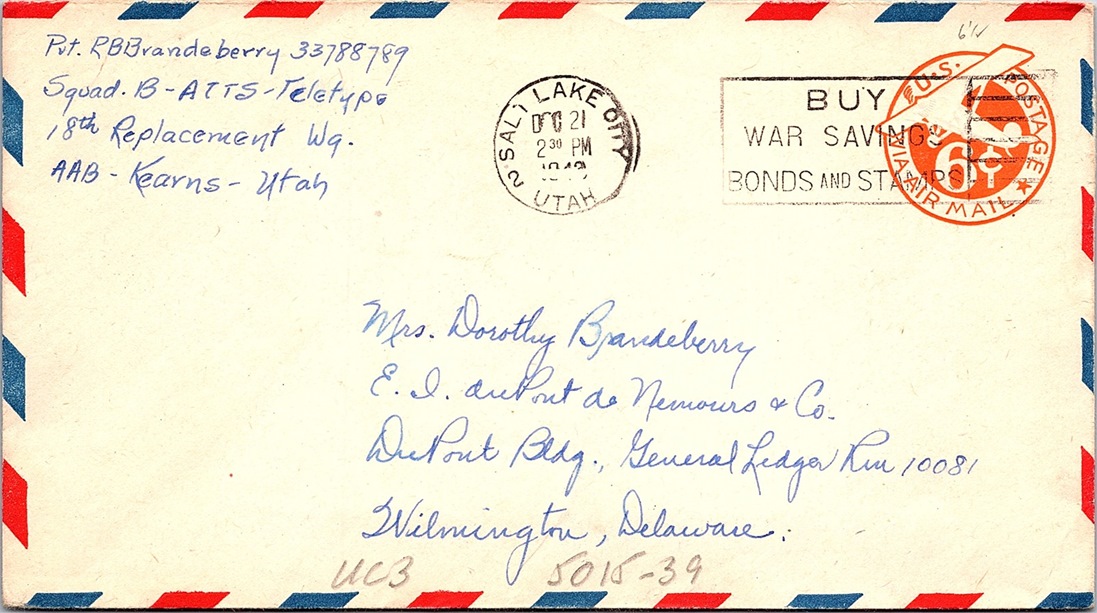 Pvt. RBBrandeberry 33788789
Squad. B - ATTS - Teletype
18th Replacement Wg.
AAB - Kearns - Utah
SALT LAKE CITY 2
DEC 21
2 30 PM
UTAH
BUY
WAR SAVINGS
BONDS AND STAMPS
U.S. POSTAGE
6¢
VIA AIR MAIL
Mrs. Dorothy Brandeberry
E. I. duPont de Nemours & Co.
DuPont Bldg., General Ledger Rm 10081
Wilmington, Delaware.
UC3 5015-39